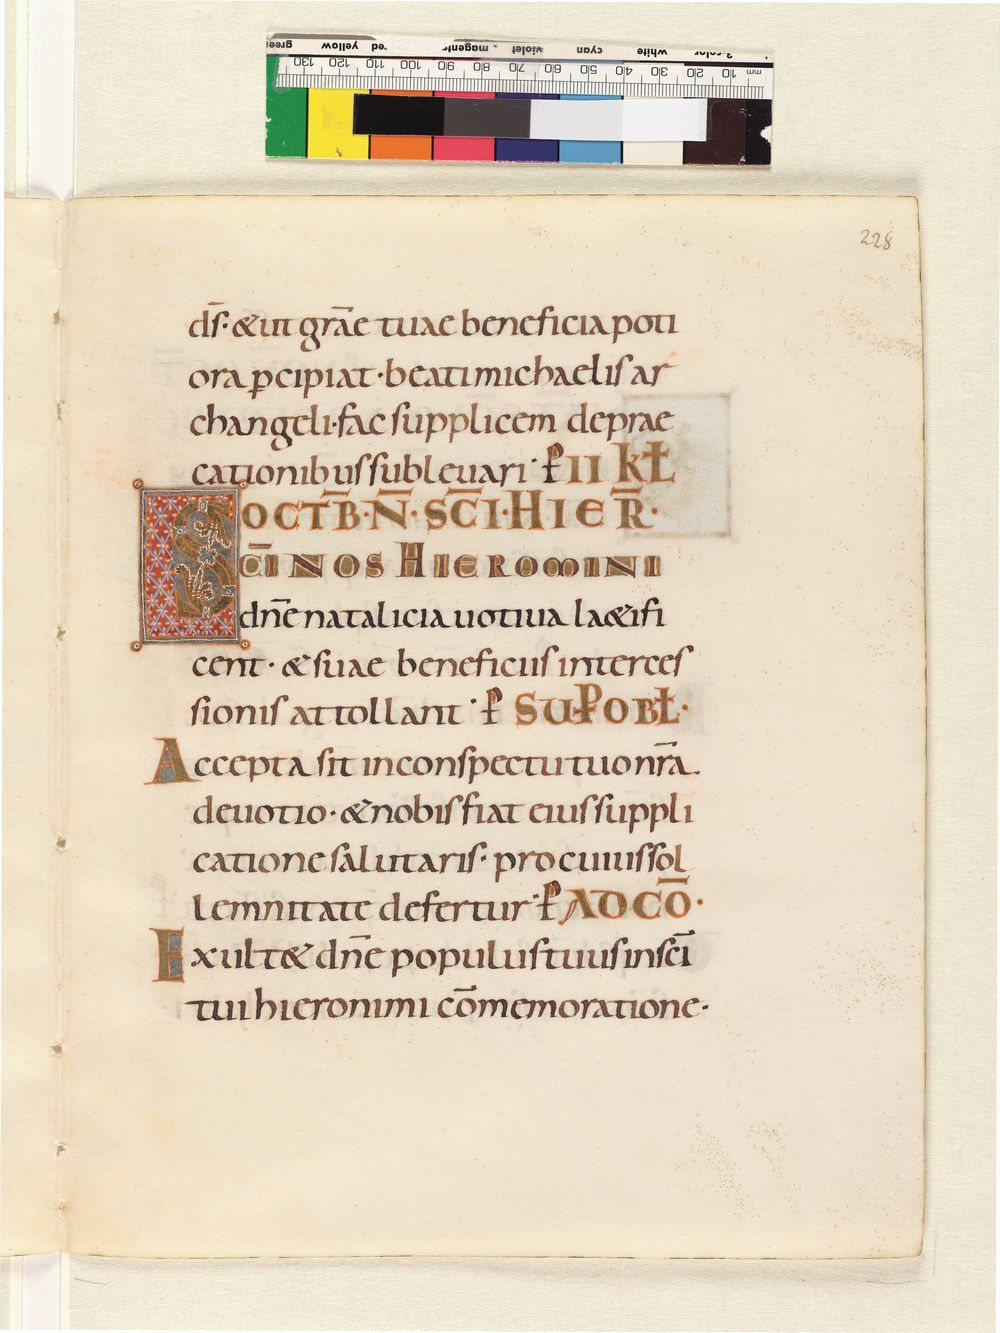 green yellow red magenta violet cyan white 3-color
130 120 110 100 90 80 70 60 50 40 30 20 10 mm
228
d̄s· & in gr̄ae tuae beneficia poti
ora ꝑcipiat· beati michaelis ar
changeli· fac supplicem deprae
cationibus sublevari· ꝑ II KŁ
OCTB̄·N̄·SC̄I·HIER̄·
S C̄I NOS HIEROMINI
dn̄e natalicia votiva la&ifi
cent· & suae beneficiis interces
sionis attollant· ꝑ SUP OBŁ·
Accepta sit in conspectu tuo nr̄a
devotio· & nobis fiat eius suppli
catione salutaris· pro cuius sol
lemnitate defertur· ꝑ AD CŌ·
Exult& dn̄e populus tuus in sc̄i
tui hieronimi cōmemoratione·